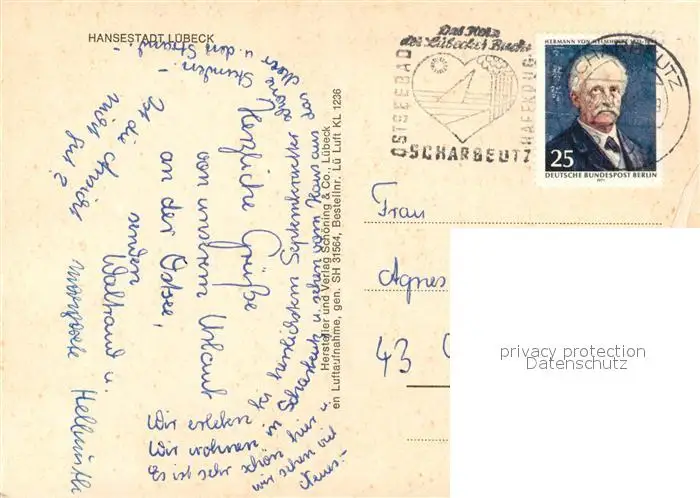 HANSESTADT LÜBECK
Herzliche Grüße
von unserem Urlaub
an der Ostsee,
senden
Waltraud u.
Hellmuth
Ist die
nicht
Wir erleben
Wir wohnen in Scharbeutz u. sehen vom Haus aus das Meer u. den Strand.-
Es ist sehr schön hier u.
wir sehen viel
Neues.-
schöne Stunden.-
Hersteller und Verlag Schöning & Co., Lübeck
en Luftaufnahme, gen. SH 31564, Bestellnr. Lü Luft KL 1236
Das Herz
der Lübecker Bucht
OSTSEEBAD
SCHARBEUTZ
HAFFKRUG
HERMANN VON HELMHOLTZ
25
DEUTSCHE BUNDESPOST BERLIN
1971
Frau
Agnes
43
privacy protection
Datenschutz